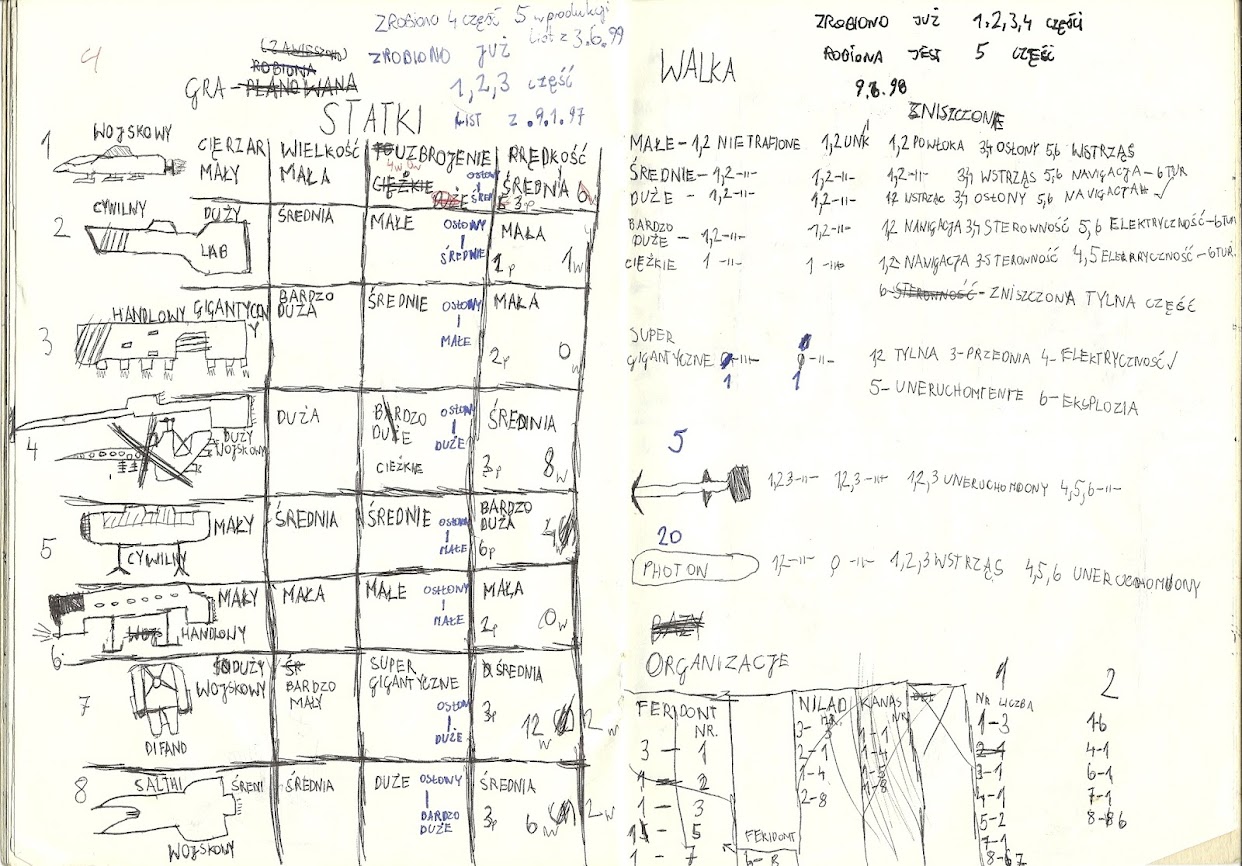 ZROBIONO 4 CZĘŚĆ 5 w produkcji
List z 3.6.99
4
(ZAWIESZONO)
ROBIONA
GRA - PLANOWANA
ZROBIONO JUŻ
1,2,3 CZĘŚĆ
LIST Z .9.1.97
STATKI
1 WOJSKOWY
CIĘRZAR WIELKOŚĆ UZBROJENIE PRĘDKOŚĆ
MAŁY MAŁA CIĘŻKIE DUŻE OSŁONY ŚREDNIA
3p
2 CYWILNY
LAB
DUŻY ŚREDNIA MAŁE OSŁONY ŚREDNIE MAŁA
1p 1w
3 HANDLOWY GIGANTYCZNY
BARDZO DUŻA ŚREDNIE OSŁONY MAŁE MAŁA
2p 0w
4 DUŻY WOJSKOWY
DUŻA BARDZO DUŻE CIEŻKIE OSŁONY DUŻE ŚREDNIA
3p 8w
5 CYWILNY
MAŁY ŚREDNIA ŚREDNIE OSŁONY MAŁE BARDZO DUŻA
6p
6. HANDLOWY
MAŁY MAŁA MAŁE OSŁONY MAŁE MAŁA
2p 0w
7 DIFAND
DUŻY WOJSKOWY BARDZO MAŁY SUPER GIGANTYCZNE OSŁONY DUŻE ŚREDNIA
3p 12w 2w
8 SALTHI
WOJSKOWY
ŚREDNIA DUŻE OSŁONY BARDZO DUŻE ŚREDNIA
3p 6w 2w
ZROBIONO JUŻ 1,2,3,4 CZĘŚCI
ROBIONA JEST 5 CZĘŚĆ
9.6.98
WALKA
ZNISZCZONE
MAŁE - 1,2 NIETRAFIONE 1,2 UNK 1,2 POWŁOKA 3,4 OSŁONY 5,6 WSTRZĄS
ŚREDNIE - 1,2 -11- 1,2 -11- 1,2 -11- 3,4 WSTRZĄS 5,6 NAWIGACJA - 6 TUR
DUŻE - 1,2 -11- 1,2 -11- 1,2 WSTRZĄS 3,4 OSŁONY 5,6 NAWIGACJA
BARDZO DUŻE - 1,2 -11- 1,2 -11- 1,2 NAWIGACJA 3,4 STEROWNOŚĆ 5,6 ELEKTRYCZNOŚĆ - 6 TUR
CIĘŻKIE 1 -11- 1 -11- 1,2 NAWIGACJA 3-STEROWNOŚĆ 4,5 ELEKTRYCZNOŚĆ - 6 TUR.
6 - STEROWNOŚĆ - ZNISZCZONA TYLNA CZĘŚĆ
SUPER
GIGANTYCZNE 1 -11- 1 -11- 1,2 TYLNA 3-PRZEDNIA 4-ELEKTRYCZNOŚĆ
5-UNERUCHOMIENIE 6-EKSPLOZIA
5
1,2,3 -11- 1,2,3 -11- 1,2,3 UNERUCHOMIONY 4,5,6 -11-
20
PHOTON 1,2 -11- 0 -11- 1,2,3 WSTRZĄS 4,5,6 UNERUCHOMIONY
BAZY
ORGANIZACJE
1 2
FERIDONT NILAD KANAS NR LICZBA
NR. NR. NR.
3 - 1 3-3 1-1 1-3 1-6
1 - 2 2-1 1-4 2-1 4-1
1 - 3 1-4 1-5 3-1 6-1
15 - 5 2-8 1-8 4-1 7-1
1 - 7 5-2 8-6
FERIDONT 7-1
8-67